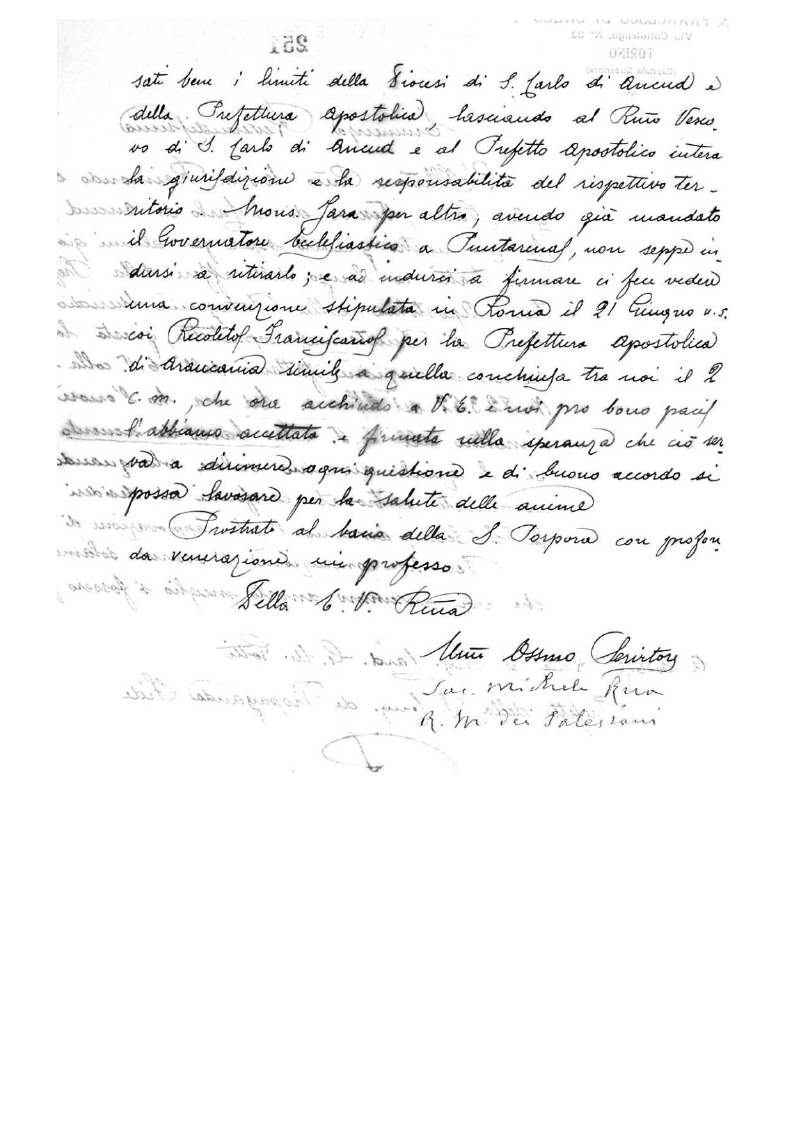 251
sati bene i limiti della Diocesi di S. Carlo di Ancud e
della Prefettura Apostolica, lasciando al Rmo Vesco-
vo di S. Carlo di Ancud e al Prefetto Apostolico intera
la giurisdizione e la responsabilità del rispettivo ter-
ritorio. Mons. Jara per altro, avendo già mandato
il Governatore Ecclesiastico a Puntarenas, non seppe in-
dursi a ritirarlo; e ad indurci a firmare ci fece vedere
una convenzione stipulata in Roma il 21 Giugno u.s.
coi Recoletos Franciscanos per la Prefettura Apostolica
di Araucania simile a quella conchiusa tra noi il 2
c.m., che ora acchiudo a V. E. e noi pro bono pacis
l'abbiamo accettata e firmata nella speranza che ciò ser-
va a dirimere ogni questione e di buono accordo si
possa lavorare per la salute delle anime
Prostrato al bacio della S. Porpora con profon-
da venerazione mi professo
Della E. V. Rma
Umo Ossmo Servitore
Sac. Michele Rua
R. M. dei Salesiani